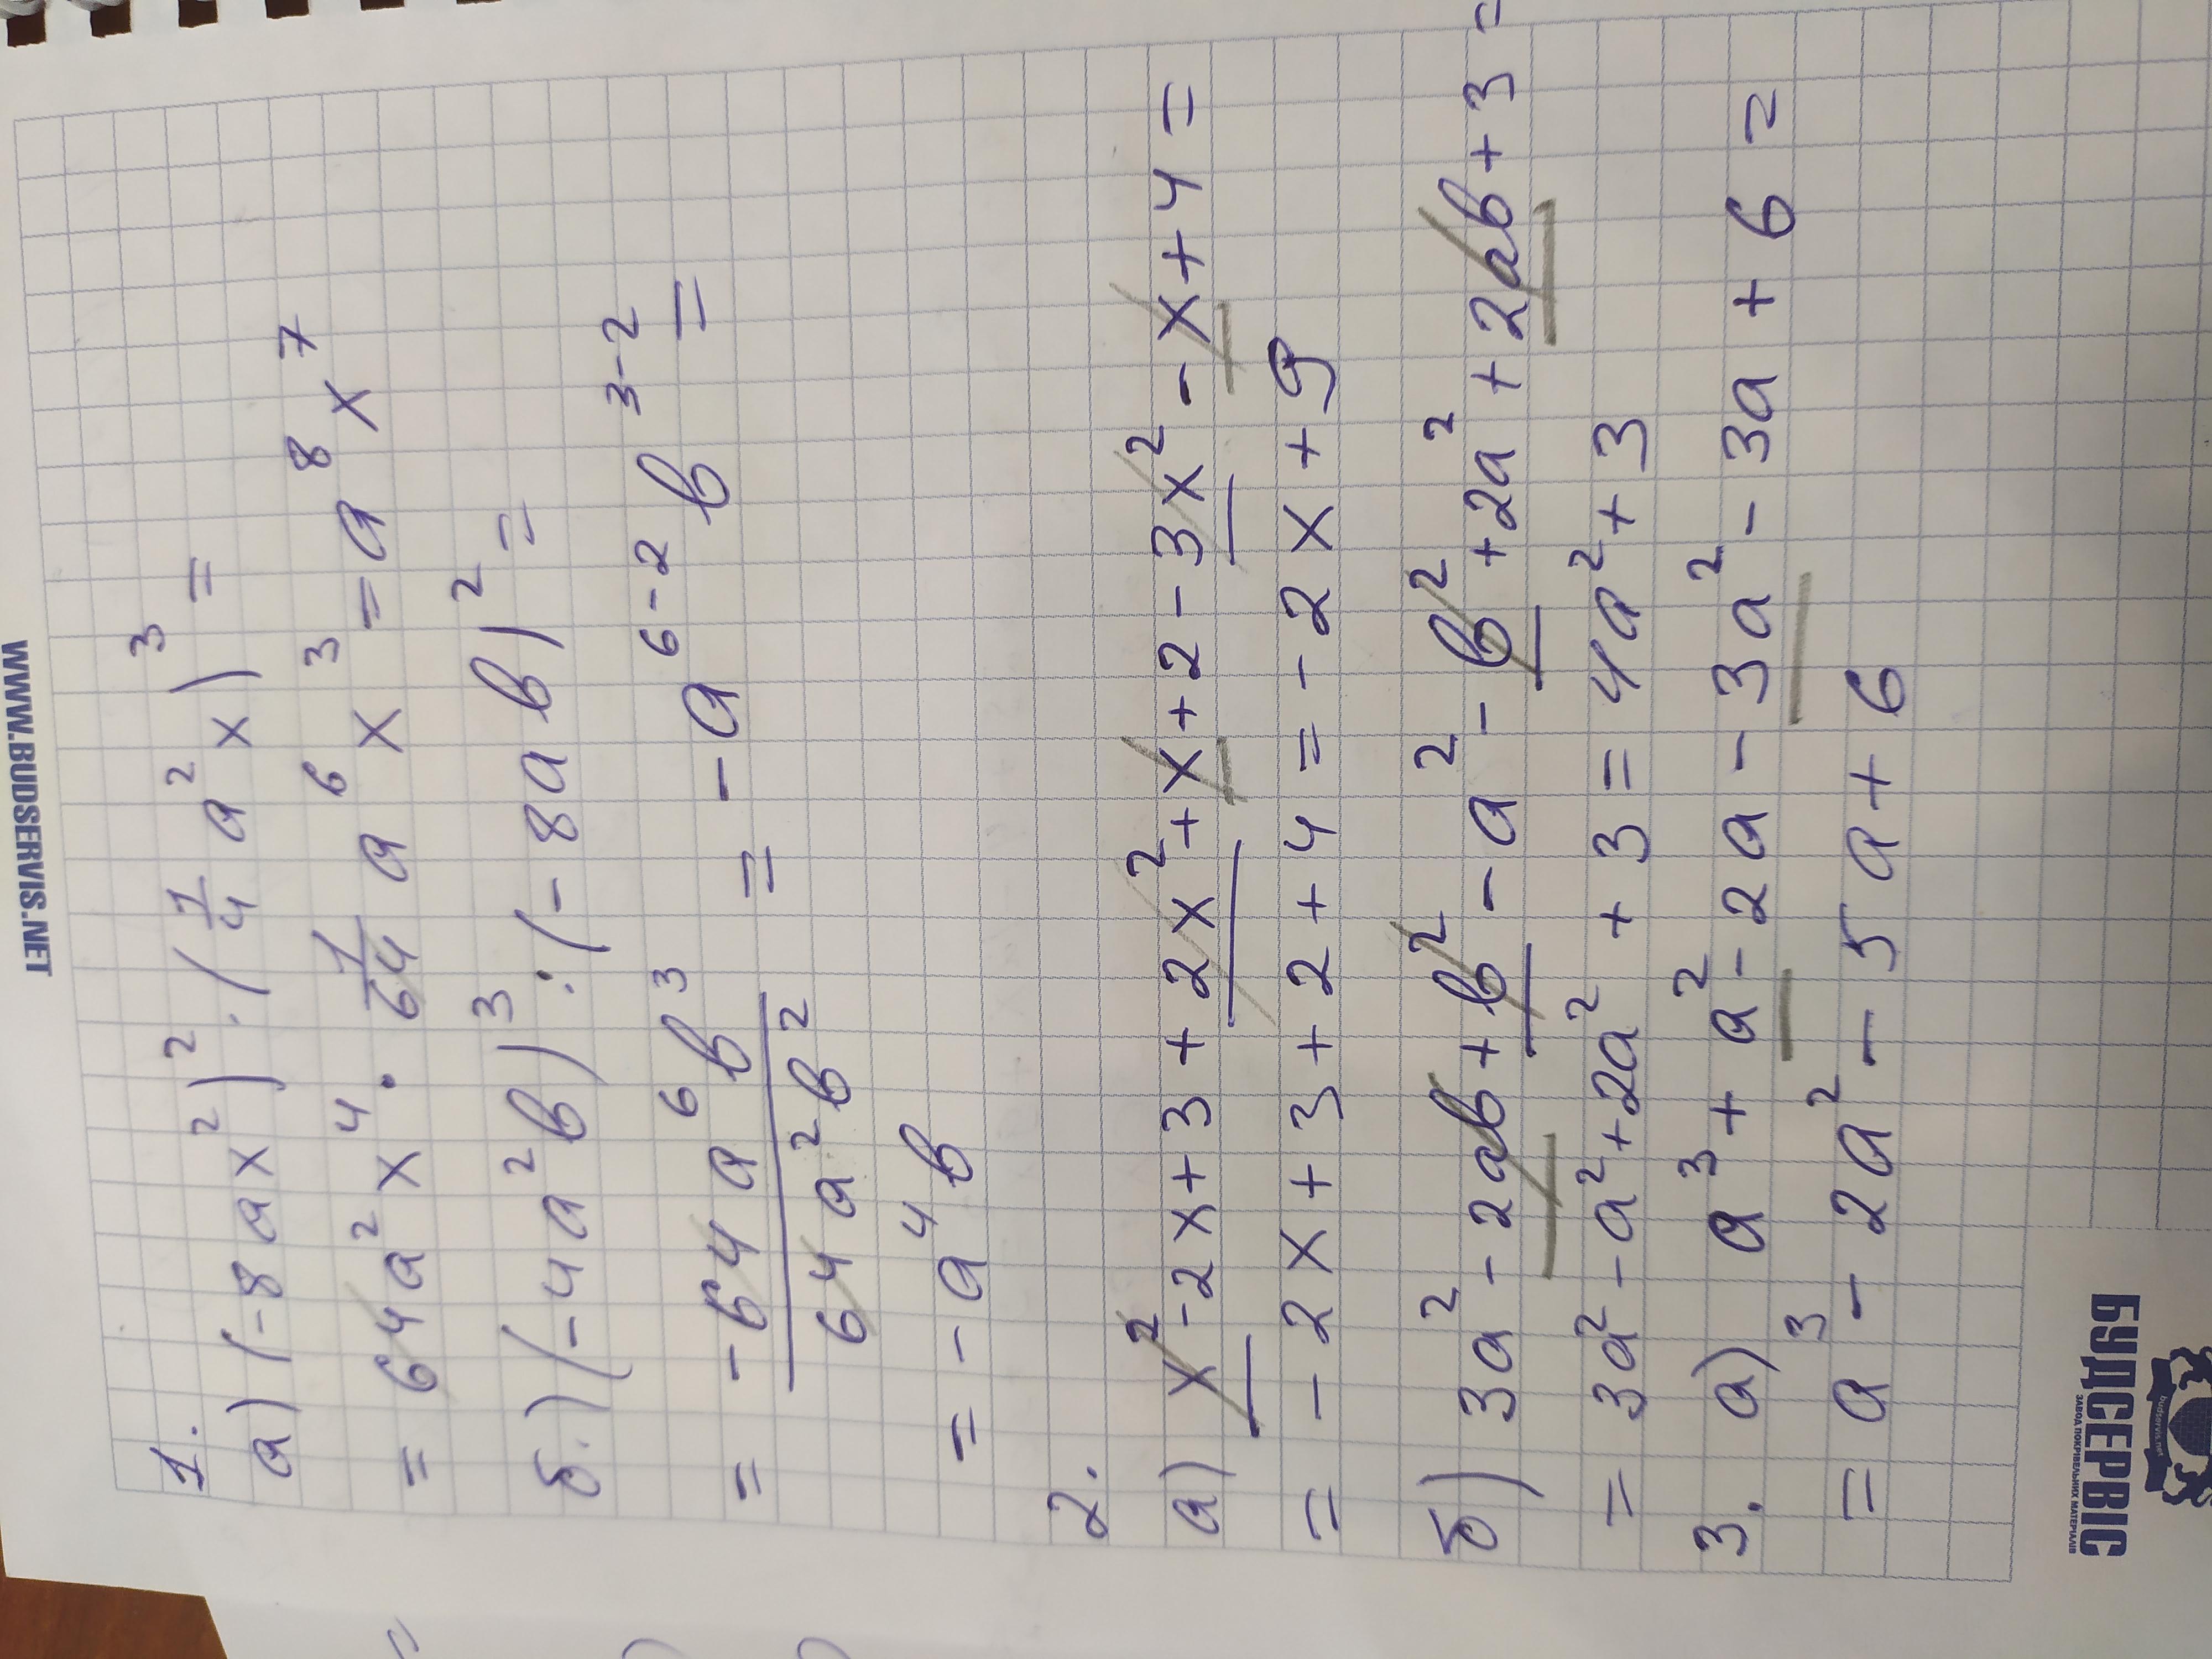 WWW.BUDSERVIS.NET
1.
а) (-8ax²)² · (1/4 a²x)³ =
= 64a²x⁴ · 1/64 a⁶x³ = a⁸x⁷
б.) (-4a²b)³ : (-8ab)² =
= -64a⁶b³/64a²b² = -a⁶⁻²b³⁻² =
= -a⁴b
2.
а) x² - 2x + 3 + 2x² + x + 2 - 3x² - x + 4 =
= -2x + 3 + 2 + 4 = -2x + 9
б) 3a² - 2ab + b² - a² - b² + 2a² + 2ab + 3 =
= 3a² - a² + 2a² + 3 = 4a² + 3
3. а) a³ + a² - 2a - 3a² - 3a + 6 =
= a³ - 2a² - 5a + 6
БУДСЕРВІС
ЗАВОД ПОКРІВЕЛЬНИХ МАТЕРІАЛІВ
budservis.net